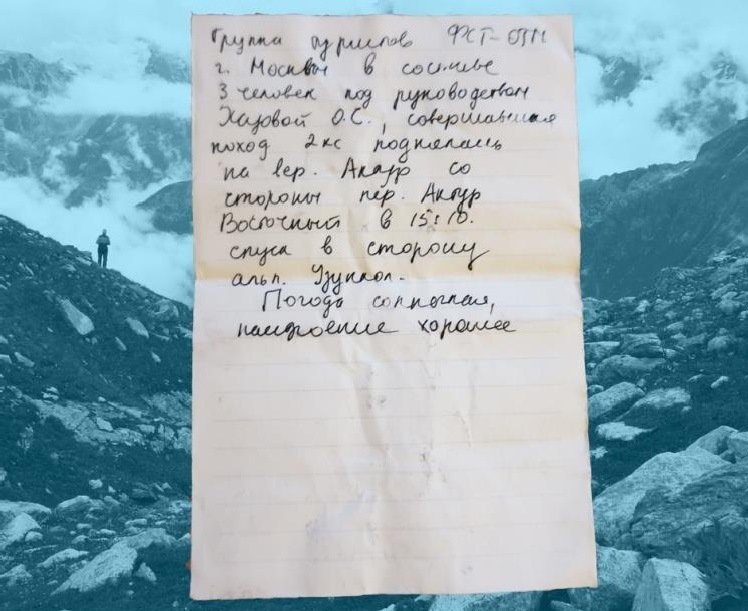 Группа туристов ФСТ-ОТМ
г. Москвы в составе
3 человек под руководством
Хазовой О.С., совершающая
поход 2 кс поднялась
на вер. Актур со
стороны пер. Актур
Восточный в 15:10.
спуск в сторону
альп. Узункол.
Погода солнечная,
настроение хорошее